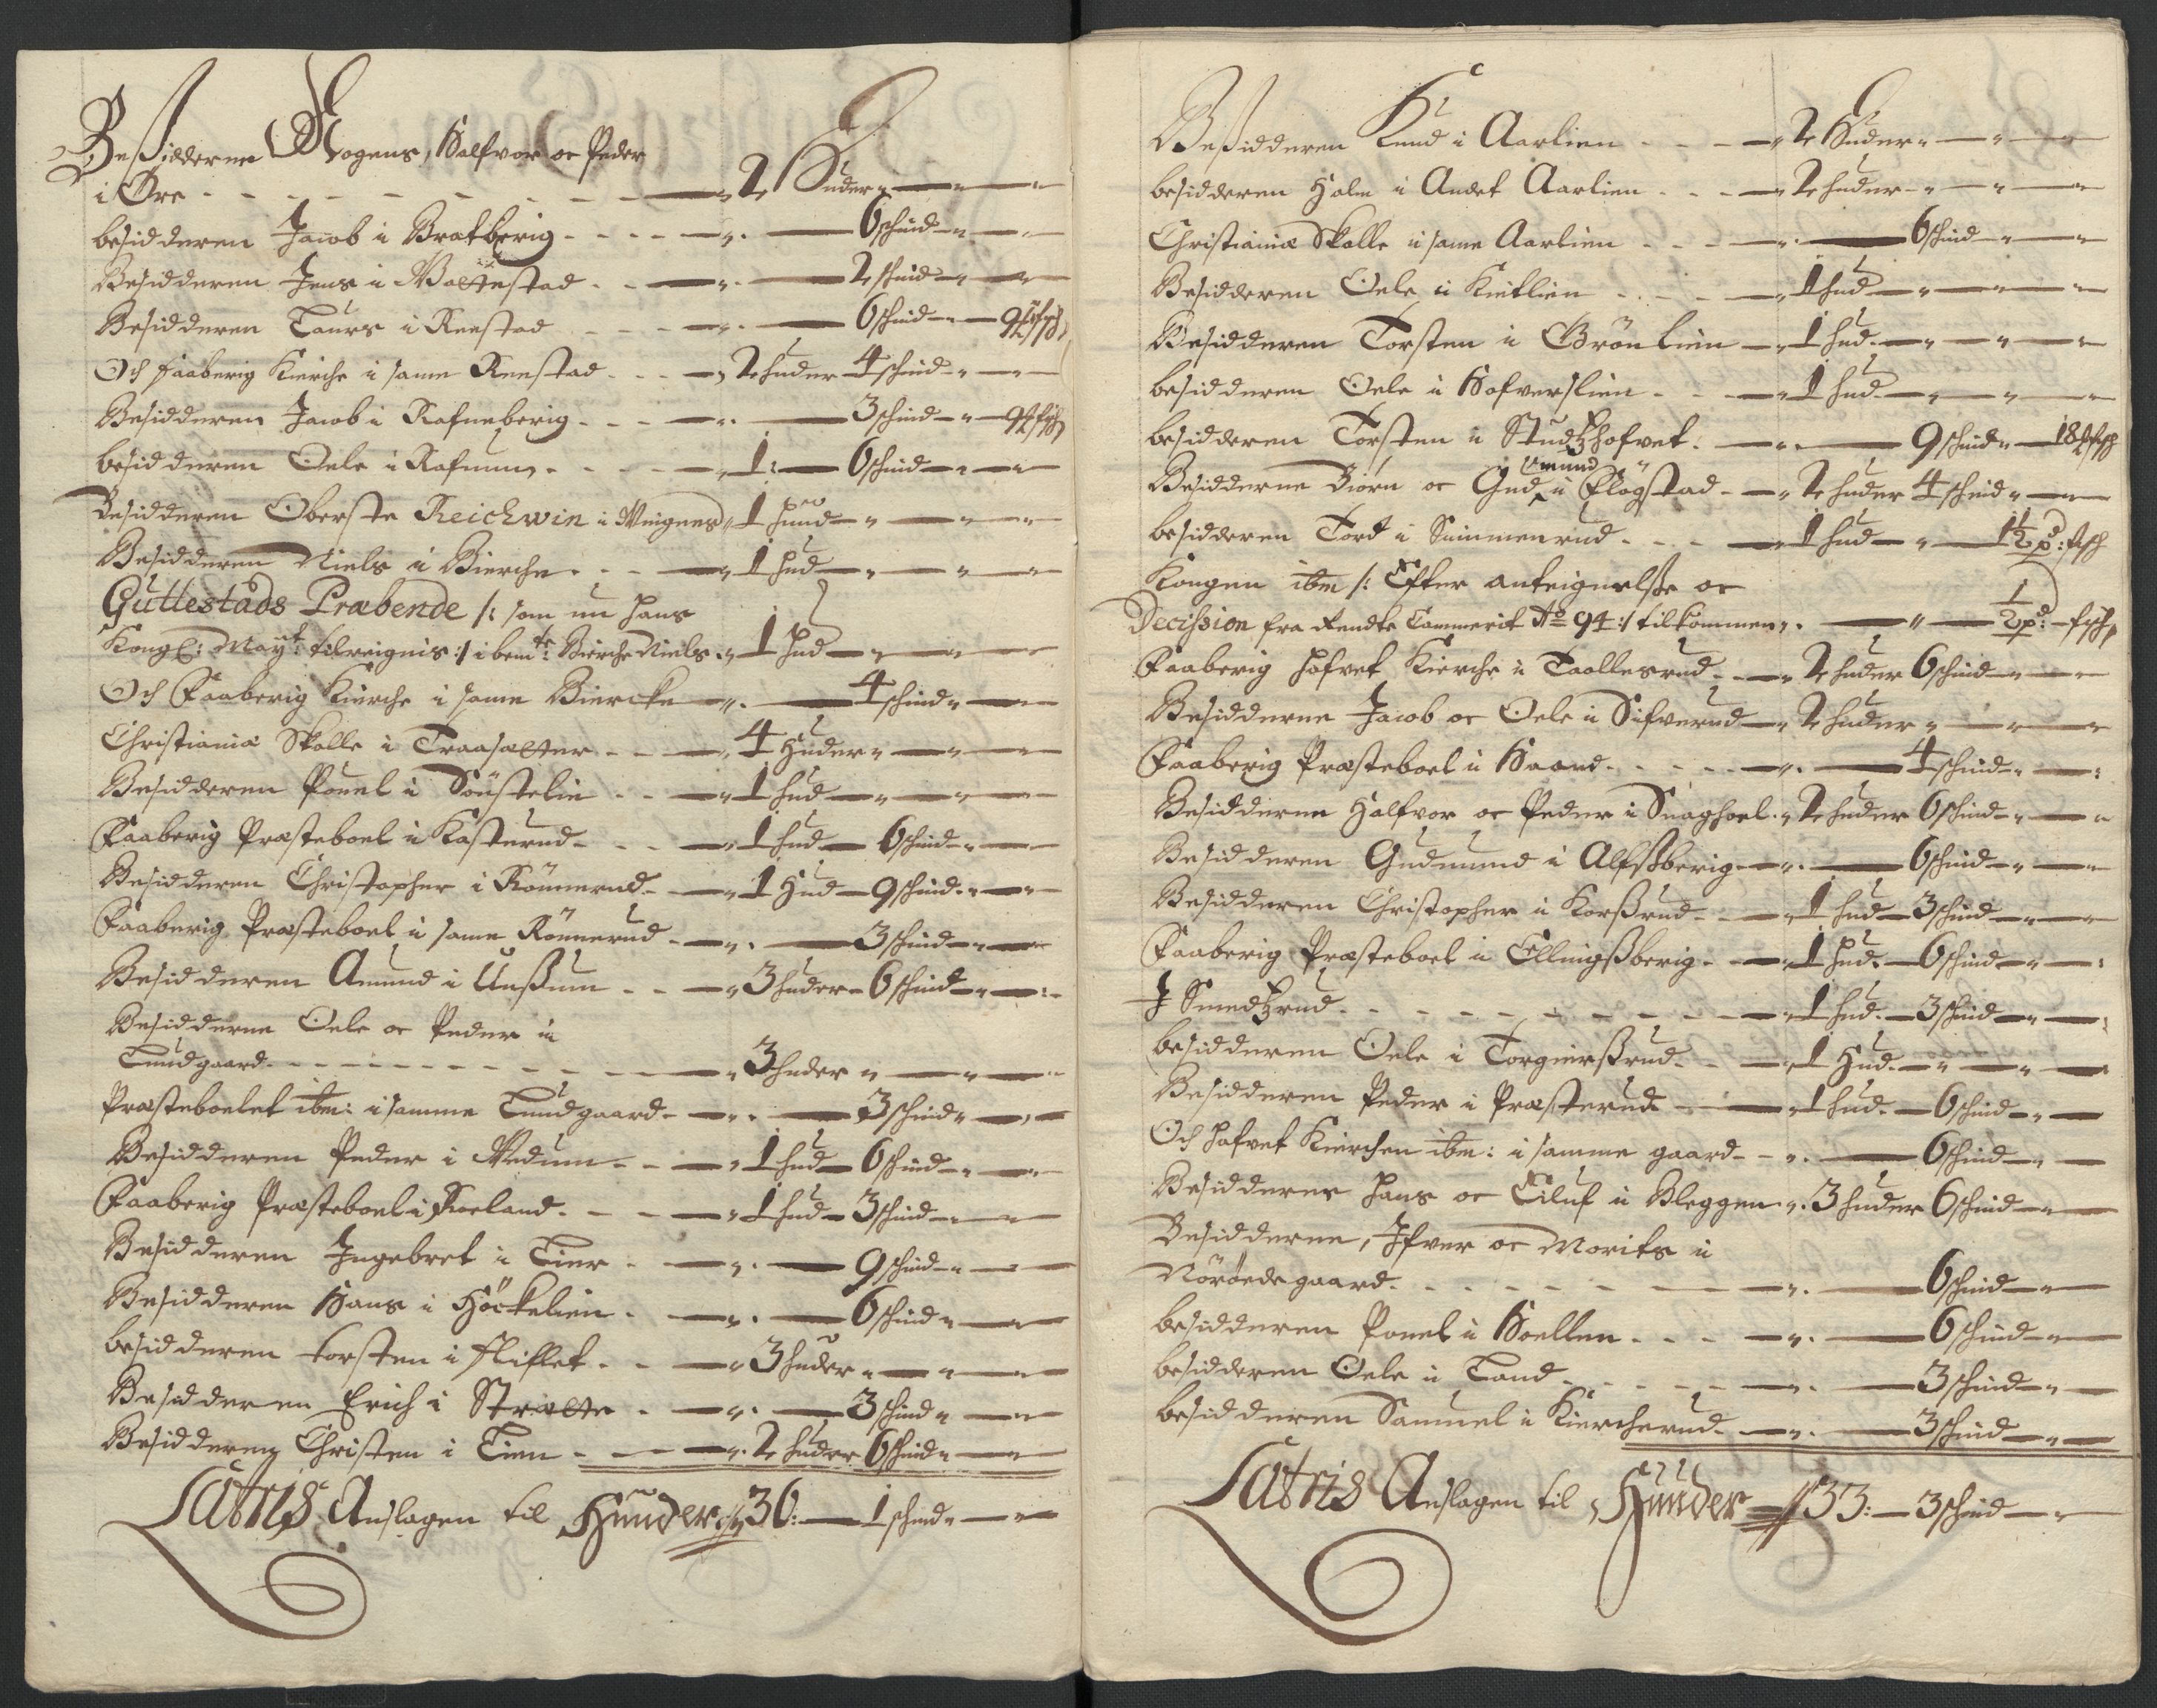 Besidderne Mogens, Halfvor oc Peder
i Øre - - - - - - - - " 2 Huder " — " —
besidderen Jacob i Bratberig - - - - " . — 6 schind — " —
Besidderen Jens i Wattestad - - " . — 2 schind — " —
Besidderen Laurs i Reestad - - - " . — 6 schind — " — 9 fisch
Och Faaberig Kierche i same Reestad - - - " 2 huder 4 schind - " —
Besidderen Jacob i Rafneberig - - - " . — 3 schind — " — 9 fisch
besidderen Oele i Rafnum - - - " 1 : — 6 schind — " —
Besidderen Oberste Reichwin i Wingnes " 1 hund — " — " —
Besidderen Niels i Bierche - - - " 1 hud — " — " —
Gullestads Præbende /: som nu hans
Kongl: May:t tilreignis :/ i bem:te Bierche Niels . " 1 hud — " — " —
Och Faaberig Kierche i same Biercke — " . — 4 schind " —
Christiania Skolle i Traasætter - - - " 4 Huder " — " —
Besidderen Pouel i Söustelie - - " 1 hud — " — " —
Faaberig Præsteboel i Kasterud - - - " 1 hud — 6 schind - " —
Besidderen Christopher i Rönnerud - - " 1 Hud — 9 schind - " —
Faaberig Præsteboel i same Rönnerud - " . — 3 schind — " —
Besidderen Amund i Unßum - - - " 3 huder - 6 schind — " —
Besidderne Oele oc Peder i
Lundgaard - - - - - - - - " 3 huder " — " —
Præsteboelet ibm: i samme Lundgaard - " . — 3 schind " —
Besidderen Peder i Wedum - - " 1 hud — 6 schind - " —
Faaberig Præsteboel i Roeland - - - " 1 hud - 3 schind — " —
Besidderen Ingebret i Lier - - " . — 9 schind — " —
Besidderen Hans i Höckelien - - " . — 6 schind " —
besidderen torsten i Fliflet - - " 3 huder " — " —
Besidderen Erich i Strætte - - " . — 3 schind " —
Besidderen Christen i Lien - - - " . 2 huder 6 schind " —
Latris Anslagen til Hunder " 36: — 1 schind - " —
Besidderen Knud i Aarlien - - - " 2 Huder " — " —
besidderen Holm i Andet Aarlien - - - " 2 huder - " — " —
Christiania Skolle i same Aarlien - - - " . — 6 schind — " —
Besidderen Oele i Kietlien - - - " 1 hud — " — " —
Besidderen Torsten i Grönlien — " 1 hud - — " — " —
besidderen Oele i Hofverslien - - " 1 hud - — " — " —
besidderen Torsten i Studtzhofvet - " . — 9 schind " — 18 fisch
Besidderne Biørn oc Gudmund i Flogstad - " 2 huder 4 schind " —
besidderen Tord i Summenrud - - - " 1 hud — " — 1½ pd: fisch
Kongen ibm /: Efter anteignelsse oc
Decission fra Rendte Cammerit Ao 94 :/ tilkommen " . — " — ½ pd: fisch
Faaberig hofvet Kierche i Taallesrud - - " 2 huder 6 schind — " —
Besidderne Jacob oc Oele i Sifverud — " 2 huder " — " —
Faaberig Præsteboel i Haave - - - " . — 4 schind - " —
Besidderne Halfvor oc Peder i Snaghoel . " 2 huder 6 schind - " —
Besidderen Gudmund i Alfßberig — " . — 6 schind — " —
Besidderen Christopher i Korßrud - - " 1 hud — 3 schind — " —
Faaberig Præsteboel i Ellingßberig - - " 1 hud - 6 schind — " —
I Smedtzrud - - - - - - - " 1 hud - 3 schind — " —
besidderen Oele i Torgierßrud - - " 1 Hud - — " — " —
Besidderen Peder i Præsterud - - " 1 hud - 6 schind — " —
Och hofvet Kierchen ibm: i samme gaard - - " . — 6 schind — " —
Besidderne hans oc Eiluf i Bleggen . " . 3 huder 6 schind — " —
Besidderne, Ifver oc Morits i
Nöröedegaard - - - - - - " . — 6 schind — " —
besidderen Pouel i Hoellen - - - " . — 6 schind — " —
besidderen Oele i Land - - - - " . — 3 schind — " —
besidderen Samuel i Kiercherud - " . — 3 schind — " —
Latris Anslagen til Hunder " 33: — 3 schind — " —